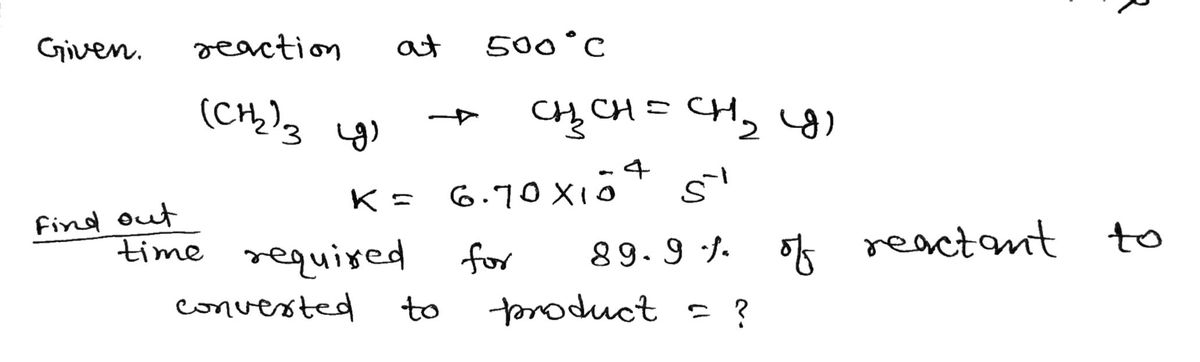 Given. reaction at 500°C
(CH₂)₃ (g) → CH₃CH = CH₂ (g)
K = 6.70 X10⁻⁴ S⁻¹
Find out
time required for 89.9 % of reactant to
converted to product = ?